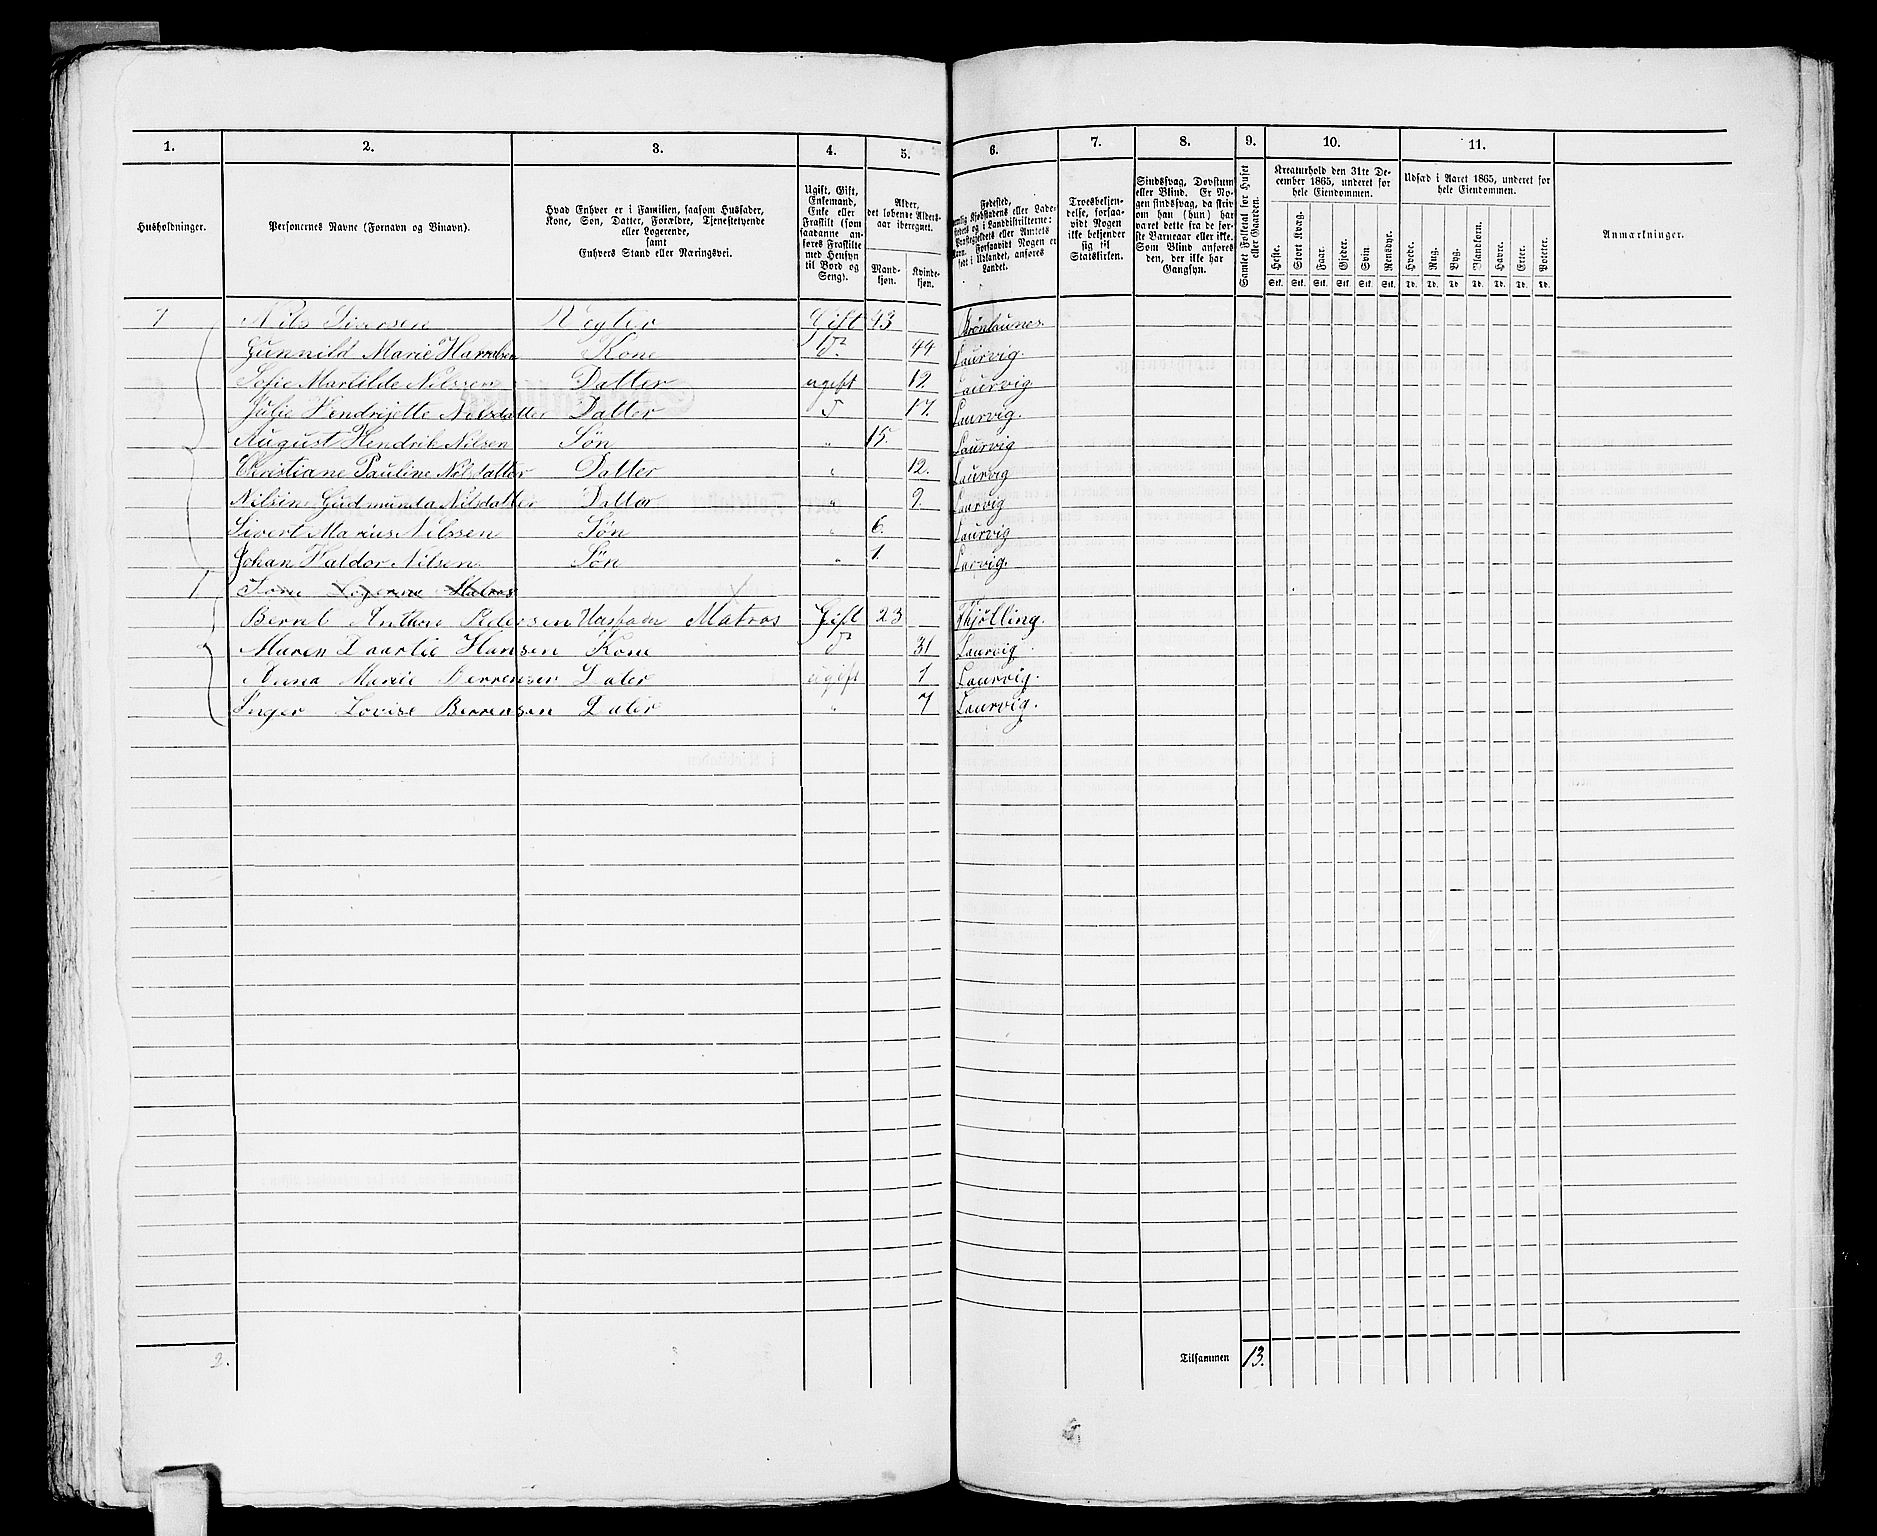 1. 2. 3. 4. 5. 6. 7. 8. 9. 10. 11.
Husholdninger.
Personernes Navne (Fornavn og Binavn).
Hvad Enhver er i Familien, saasom Husfader,
Kone, Søn, Datter, Forældre, Tjenestetyende
eller Logerende,
samt
Enhvers Stand eller Næringsvei.
Ugift, Gift,
Enkemand,
Enke eller
Fraskilt (som
saadanne an-
føres Fraskilte
med Hensyn
til Bord og
Seng).
Alder,
det løbende Alders-
aar iberegnet.
Mand-
kjøn.
Kvinde-
kjøn.
Fødested,
Forsaavidt Nogen er
født i Udlandet, anføres
Landet.
Troesbekjen-
delse, forsaa-
vidt Nogen
ikke bekjender
sig til
Statskirken.
Sindssvag, Døvstum
eller Blind. Er No-
gen sindssvag, da skriv
om han (hun) har
været dette fra de før-
ste Barneaar eller ikke.
Som Blind anføres
den, der ikke har
Gangsyn.
Samlet Folketal for Huset
eller Gaarden.
Kreaturhold den 31te De-
cember 1865, underet for
hele Eiendommen.
Heste. Stort Kvæg. Faar. Gjeder. Svin. Rensdyr.
Stk. Stk. Stk. Stk. Stk. Stk.
Udsæd i Aaret 1865, underet for
hele Eiendommen.
Hvede. Rug. Byg. Blandkorn. Havre. Erter. Poteter.
Td. Td. Td. Td. Td. Td. Td.
Anmærkninger.
1 Nils Gift 43
Gunnild Marie Kone Do 44 Laurvig.
Sofie Martilde Nilssen Datter ugift 19. Laurvig
Julie Hendrijette Nilsdatter Datter 17. Laurvig.
August Hendrik Nilsen Søn " 15. Laurvig
Christiane Pauline Nilsdatter Datter " 12. Laurvig
Nilsine Gudmunda Nilsdatter Datter " 9. Laurvig
Sivert Marius Nilssen Søn " 6. Laurvig
Johan Haldor Nilsen Søn " 1. Larvig.
1
Bernt Anthon Pedersen Husfader Matros Gift 23 Kjølling.
Maren Hansen Kone Do 31 Laurvig
Anna Marie Berrensen Dater ugift 1 Laurvig.
Inger Lovise Berrensen Dater " 7 Laurvig.
2.
Tilsammen 13.